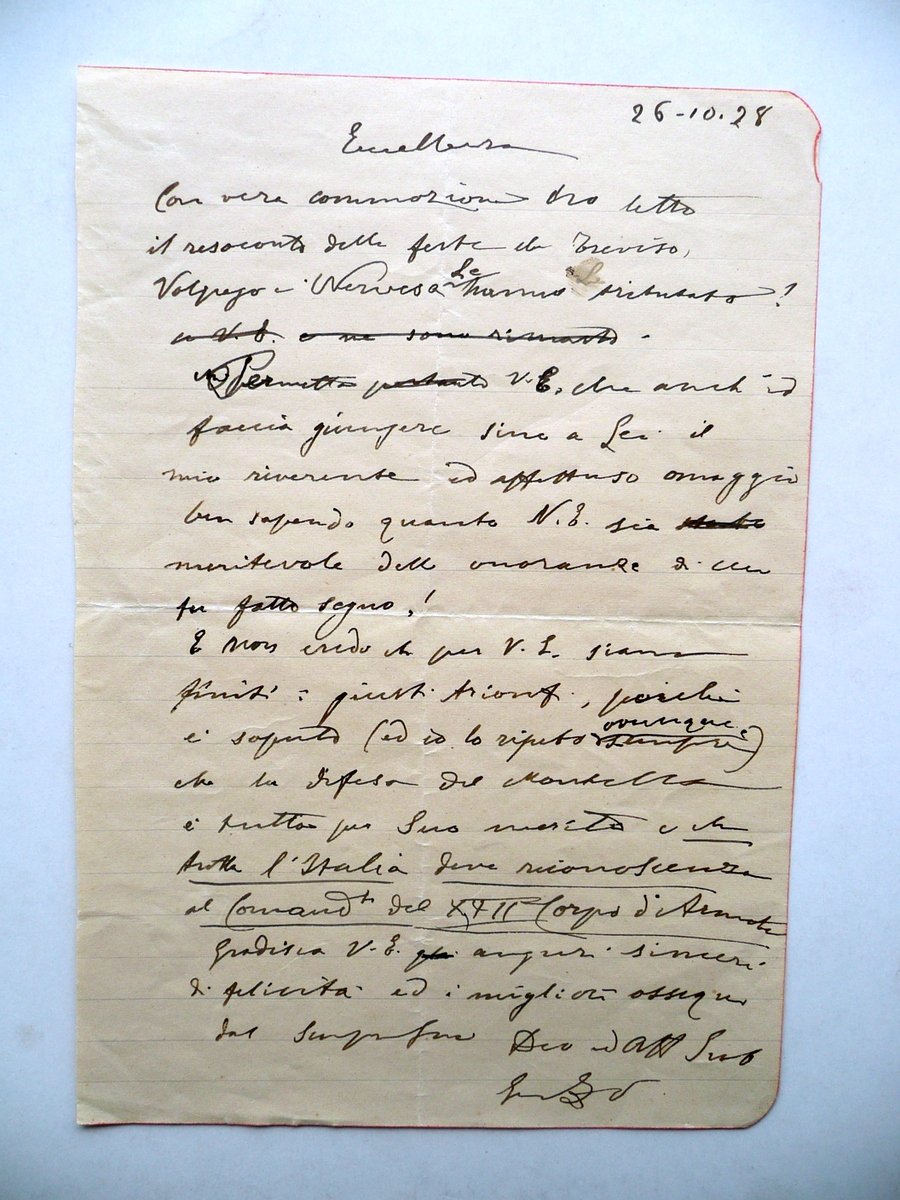 26-10.28
Eccellenza
Con vera commozione ho letto
il resoconto delle feste che Treviso,
Volpago e Nervesa Le hanno tributato!
a V.E. e ne sono rimasto
Permetta pertanto V.E. che anch'io
faccia giungere sino a Lei il
mio riverente ed affettuso omaggio
ben sapendo quanto V.E. sia stato
meritevole delle onoranze di cui
fu fatto segno!
E non credo che per V.E. siano
finiti i giusti trionfi, poichè
è saputo (ed io lo ripeto sempre ovunque)
che la difesa del Montello
è tutto per Suo merito e che
tutta l'Italia deve riconoscenza
al Comand.te del XXII Corpo d'Armata
Gradisca V.E. gli auguri sinceri
di felicità ed i migliori ossequi
dal sempre Suo Dev ed Aff Sub